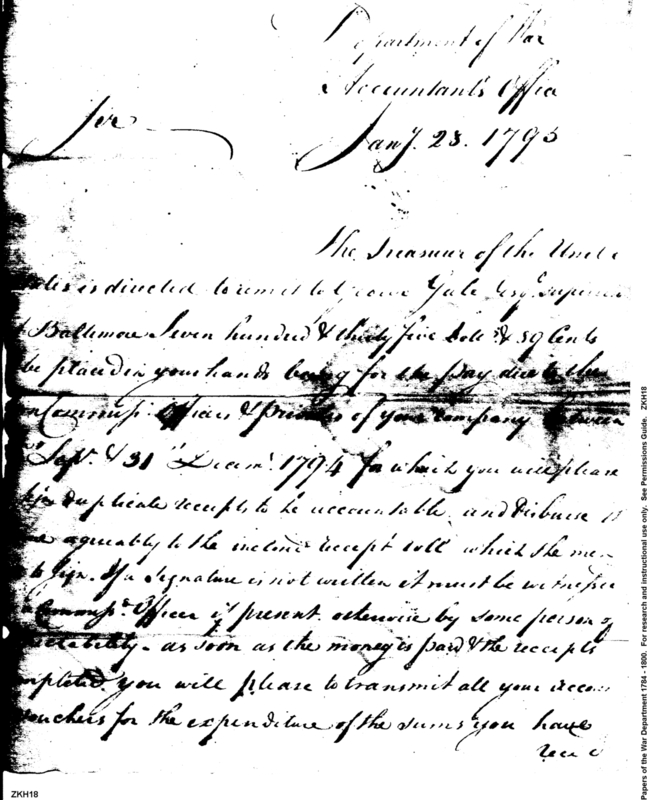 Department of War
Accountant's Office
Sir
Jany. 28. 1795
The Treasurer of the Unite
is directed to remit to George Gale Esqr.
Baltimore Seven hundred & thirty five Dolls. & 59 Cents
be placed in your hands being for the pay due to the
Commisd. Officers & privates of your company between
Sepr. & 31 Decemr. 1794 for which you will please
duplicate receipts to be accountable and disburse
agreeably to the inclosed receipt roll which the men
to sign. If a signature is not written it must be witnessed
Commisd. Officer if present otherwise by some person of
as soon as the money is paid & the receipts
you will please to transmit all your accou
vouchers for the expenditure of the sums you have
ZKH18
Papers of the War Department 1784 - 1800. For research and instructional use only. See Permissions Guide. ZKH18